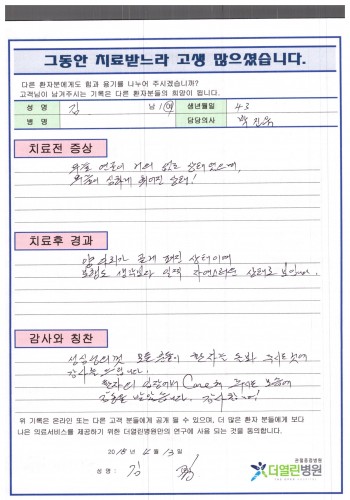 그동안 치료받느라 고생 많으셨습니다.
다른 환자분에게도 힘과 용기를 나누어 주시겠습니까?
고객님이 남겨주시는 기록은 다른 환자분들의 희망이 됩니다.
성 명 김 남 / 여 생년월일 43
병 명 담당의사 박진욱
치료전 증상
거의 없는 상태였으며,
심하게 휘어진 상태!
치료후 경과
양 다리가 곧게 해진 상태이며
보행도 생각보다 일찍 자연스러운 상태로 보임.
감사와 칭찬
성심성의껏 모든 분들이 환자를 돌봐 주시는 것에
감사를 드립니다.
환자의 입장에서 Care해 주시는 모습에
감동을 받았습니다. 감사합니다!
위 기록은 온라인 또는 다른 고객 분들에게 공개 될 수 있으며, 더 많은 환자 분들에게 보다
나은 의료서비스를 제공하기 위한 더열린병원만의 연구에 사용 되는 것을 동의합니다.
2018년 4월 13일
성 명 : 김
관절중점병원
더열린병원